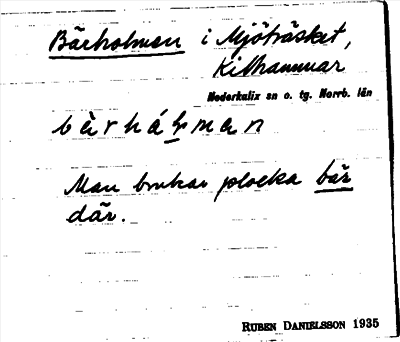 Bärholmen i Mjöträsket,
Kilhammar
Nederkalix sn o. tg. Norrb. län
bèrhálman
Man brukar plocka bär
där.
RUBEN DANIELSSON 1935